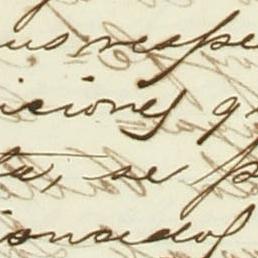 us respe
iciones q
ta, se p
ionadof